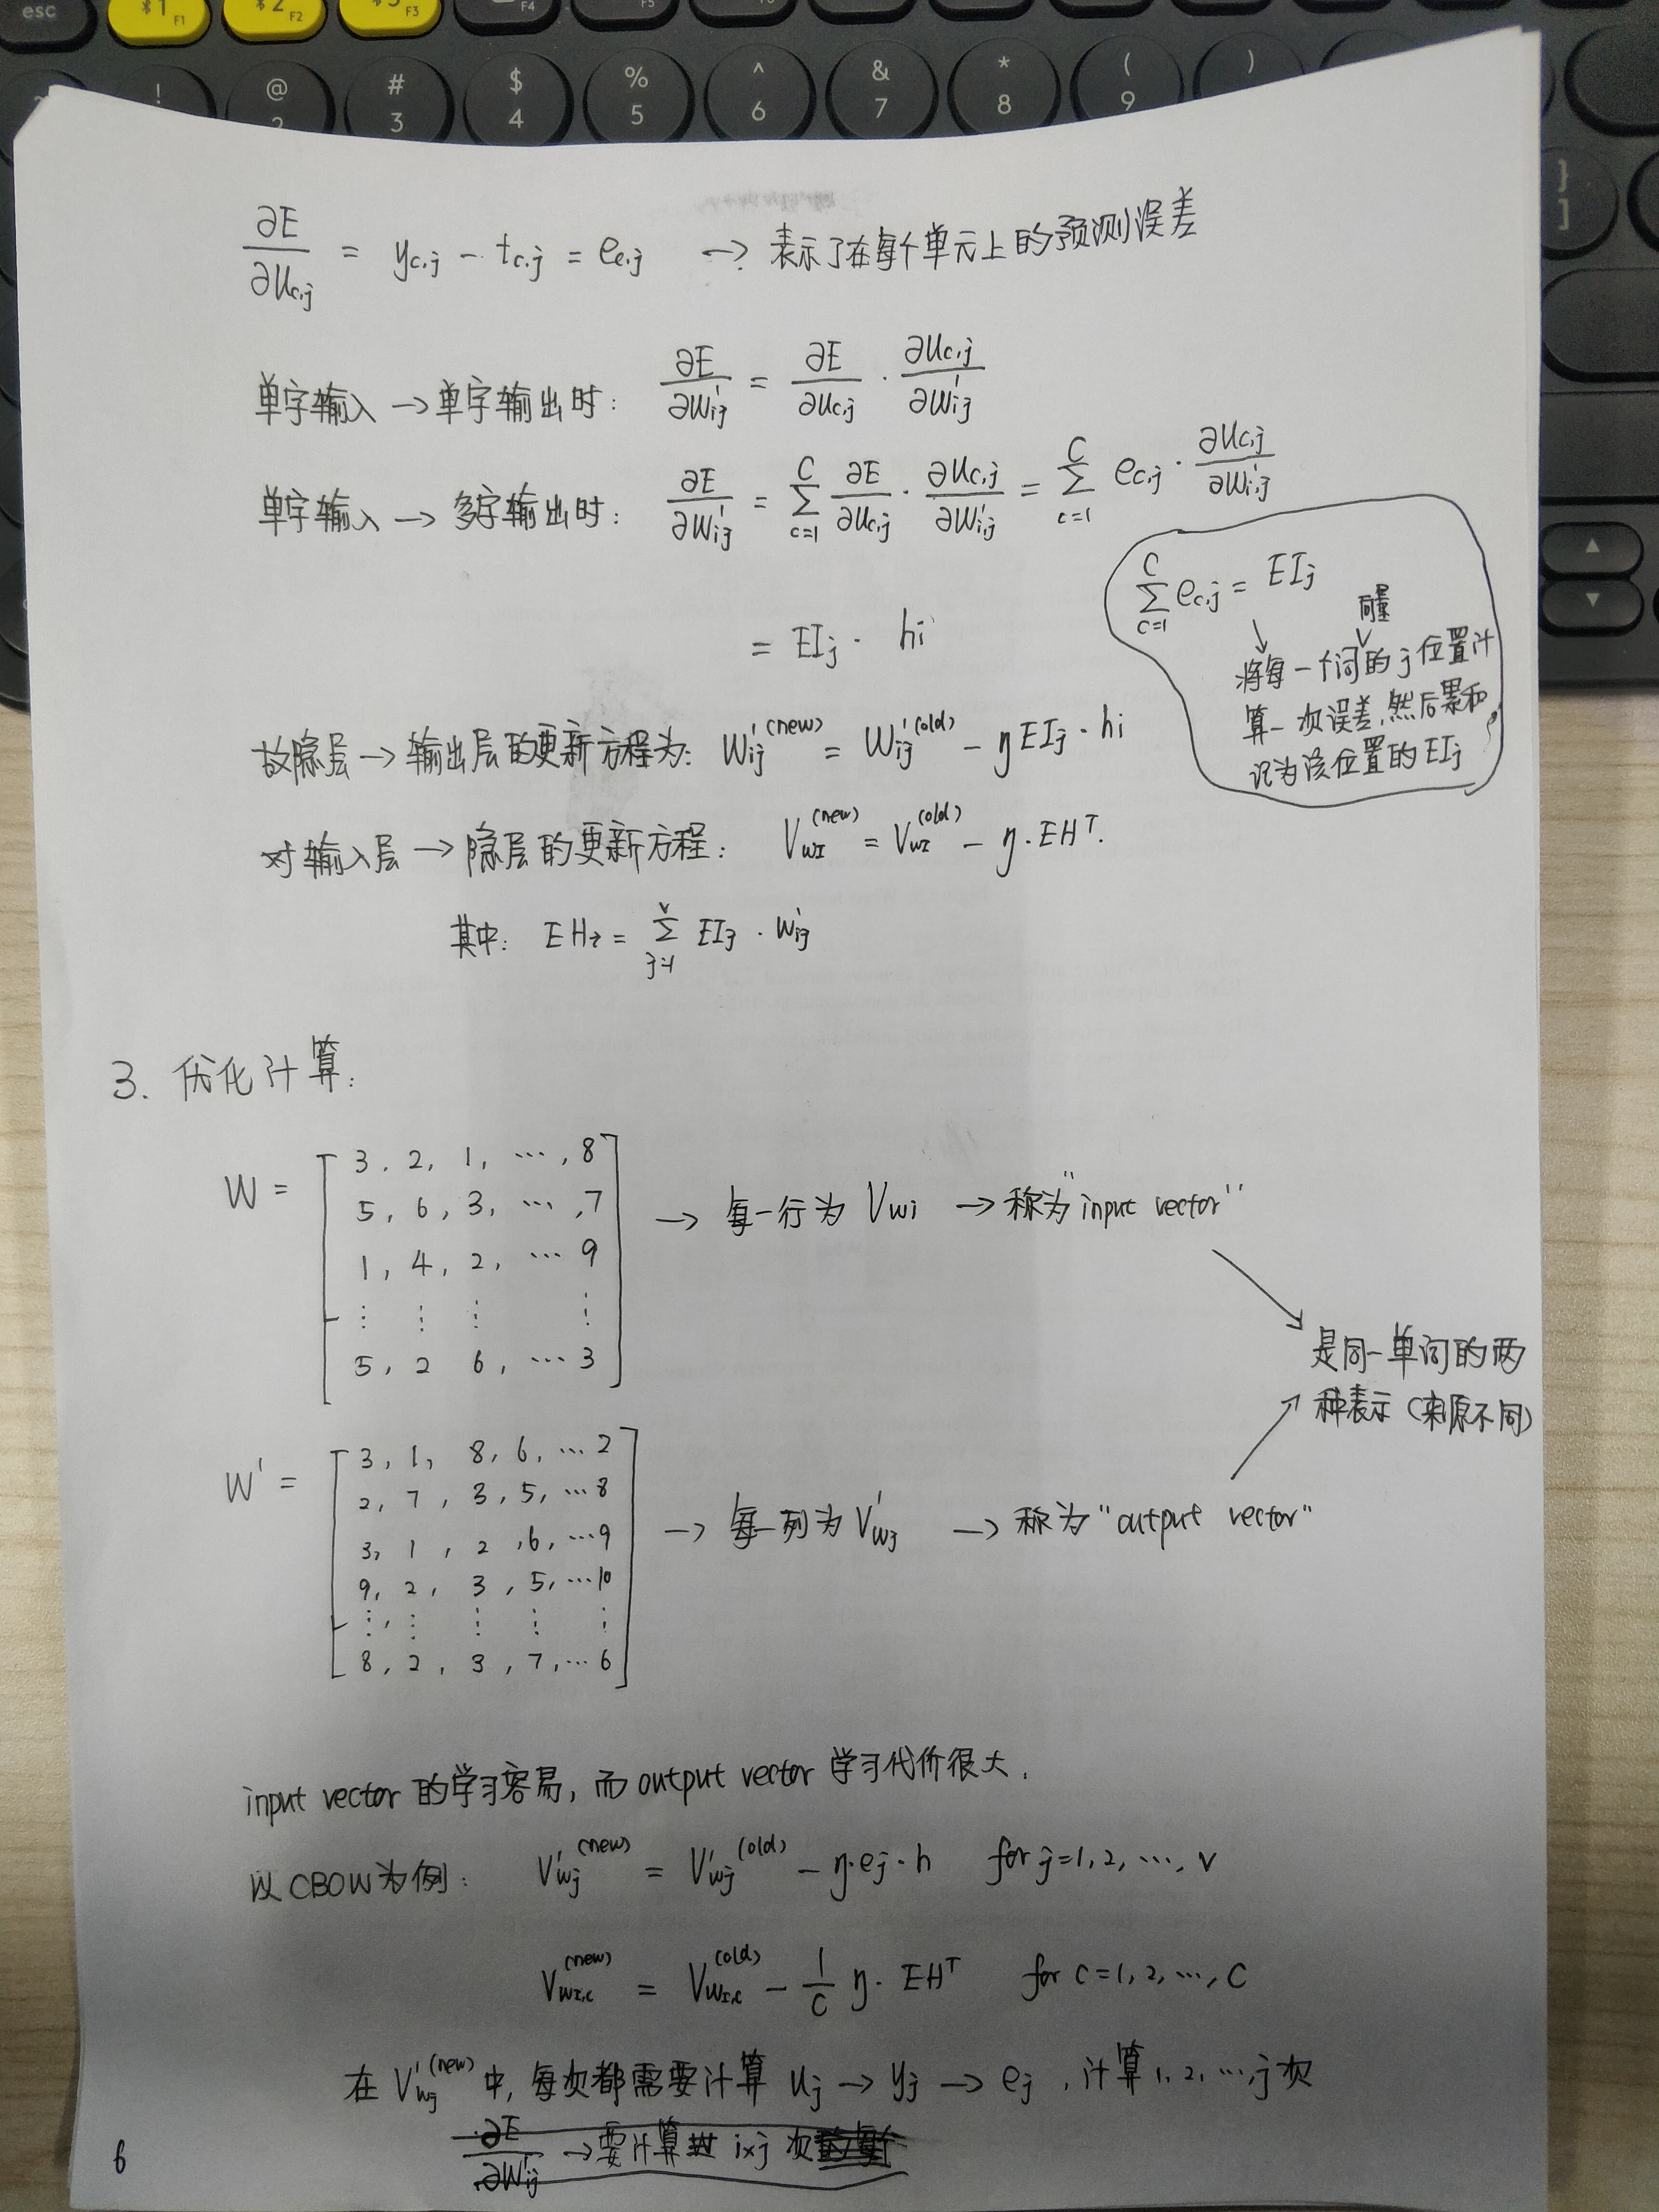 esc *1 F1 *2 F2 *3 F3 F4 F5
! @ 2 # 3 $ 4 % 5 ^ 6 & 7 * 8 ( 9 )
} ]
∂E/∂u_{c,j} = y_{c,j} - t_{c,j} = e_{c,j} → 表示了在每个单元上的预测误差
单字输入 → 单字输出时: ∂E/∂W'_{ij} = ∂E/∂u_{c,j} · ∂u_{c,j}/∂W'_{ij}
单字输入 → 多字输出时: ∂E/∂W'_{ij} = Σ_{c=1}^{C} ∂E/∂u_{c,j} · ∂u_{c,j}/∂W'_{i,j} = Σ_{c=1}^{C} e_{c,j} · ∂u_{c,j}/∂W'_{i,j}
Σ_{c=1}^{C} e_{c,j} = EI_j
↘ 将每一个词向量的j位置计
算一次误差,然后累和,
记为该位置的EI_j
= EI_j · h_i
故隐层 → 输出层的更新方程为: W'_{ij}^{(new)} = W'_{ij}^{(old)} - η EI_j · h_i
对输入层 → 隐层的更新方程: V_{wI}^{(new)} = V_{wI}^{(old)} - η · EH^T.
其中: EH_i = Σ_{j=1}^{V} EI_j · W'_{ij}
3. 优化计算:
W = [
3, 2, 1, ⋯, 8
5, 6, 3, ⋯, 7
1, 4, 2, ⋯ 9
⋮ ⋮ ⋮ ⋮
5, 2 6, ⋯ 3
] → 每一行为 V_{wi} → 称为"input vector"
是同一单词的两
种表示(来原不同)
W' = [
3, 1, 8, 6, ⋯ 2
2, 7, 3, 5, ⋯ 8
3, 1, 2, 6, ⋯ 9
9, 2, 3, 5, ⋯ 10
⋮, ⋮ ⋮ ⋮ ⋮
8, 2, 3, 7, ⋯ 6
] → 每一列为 V'_{wj} → 称为"output vector"
input vector 的学习容易, 而 output vector 学习代价很大.
以CBOW为例: V'_{wj}^{(new)} = V'_{wj}^{(old)} - η·e_j·h for j=1, 2, ⋯, V
V_{wI,c}^{(new)} = V_{wI,c}^{(old)} - 1/C η · EH^T for c=1, 2, ⋯, C
在 V'_{wj}^{(new)} 中, 每次都需要计算 u_j → y_j → e_j, 计算 1, 2, ⋯, j 次
∂E/∂W'_{ij} → 要计算 i×j 次
6